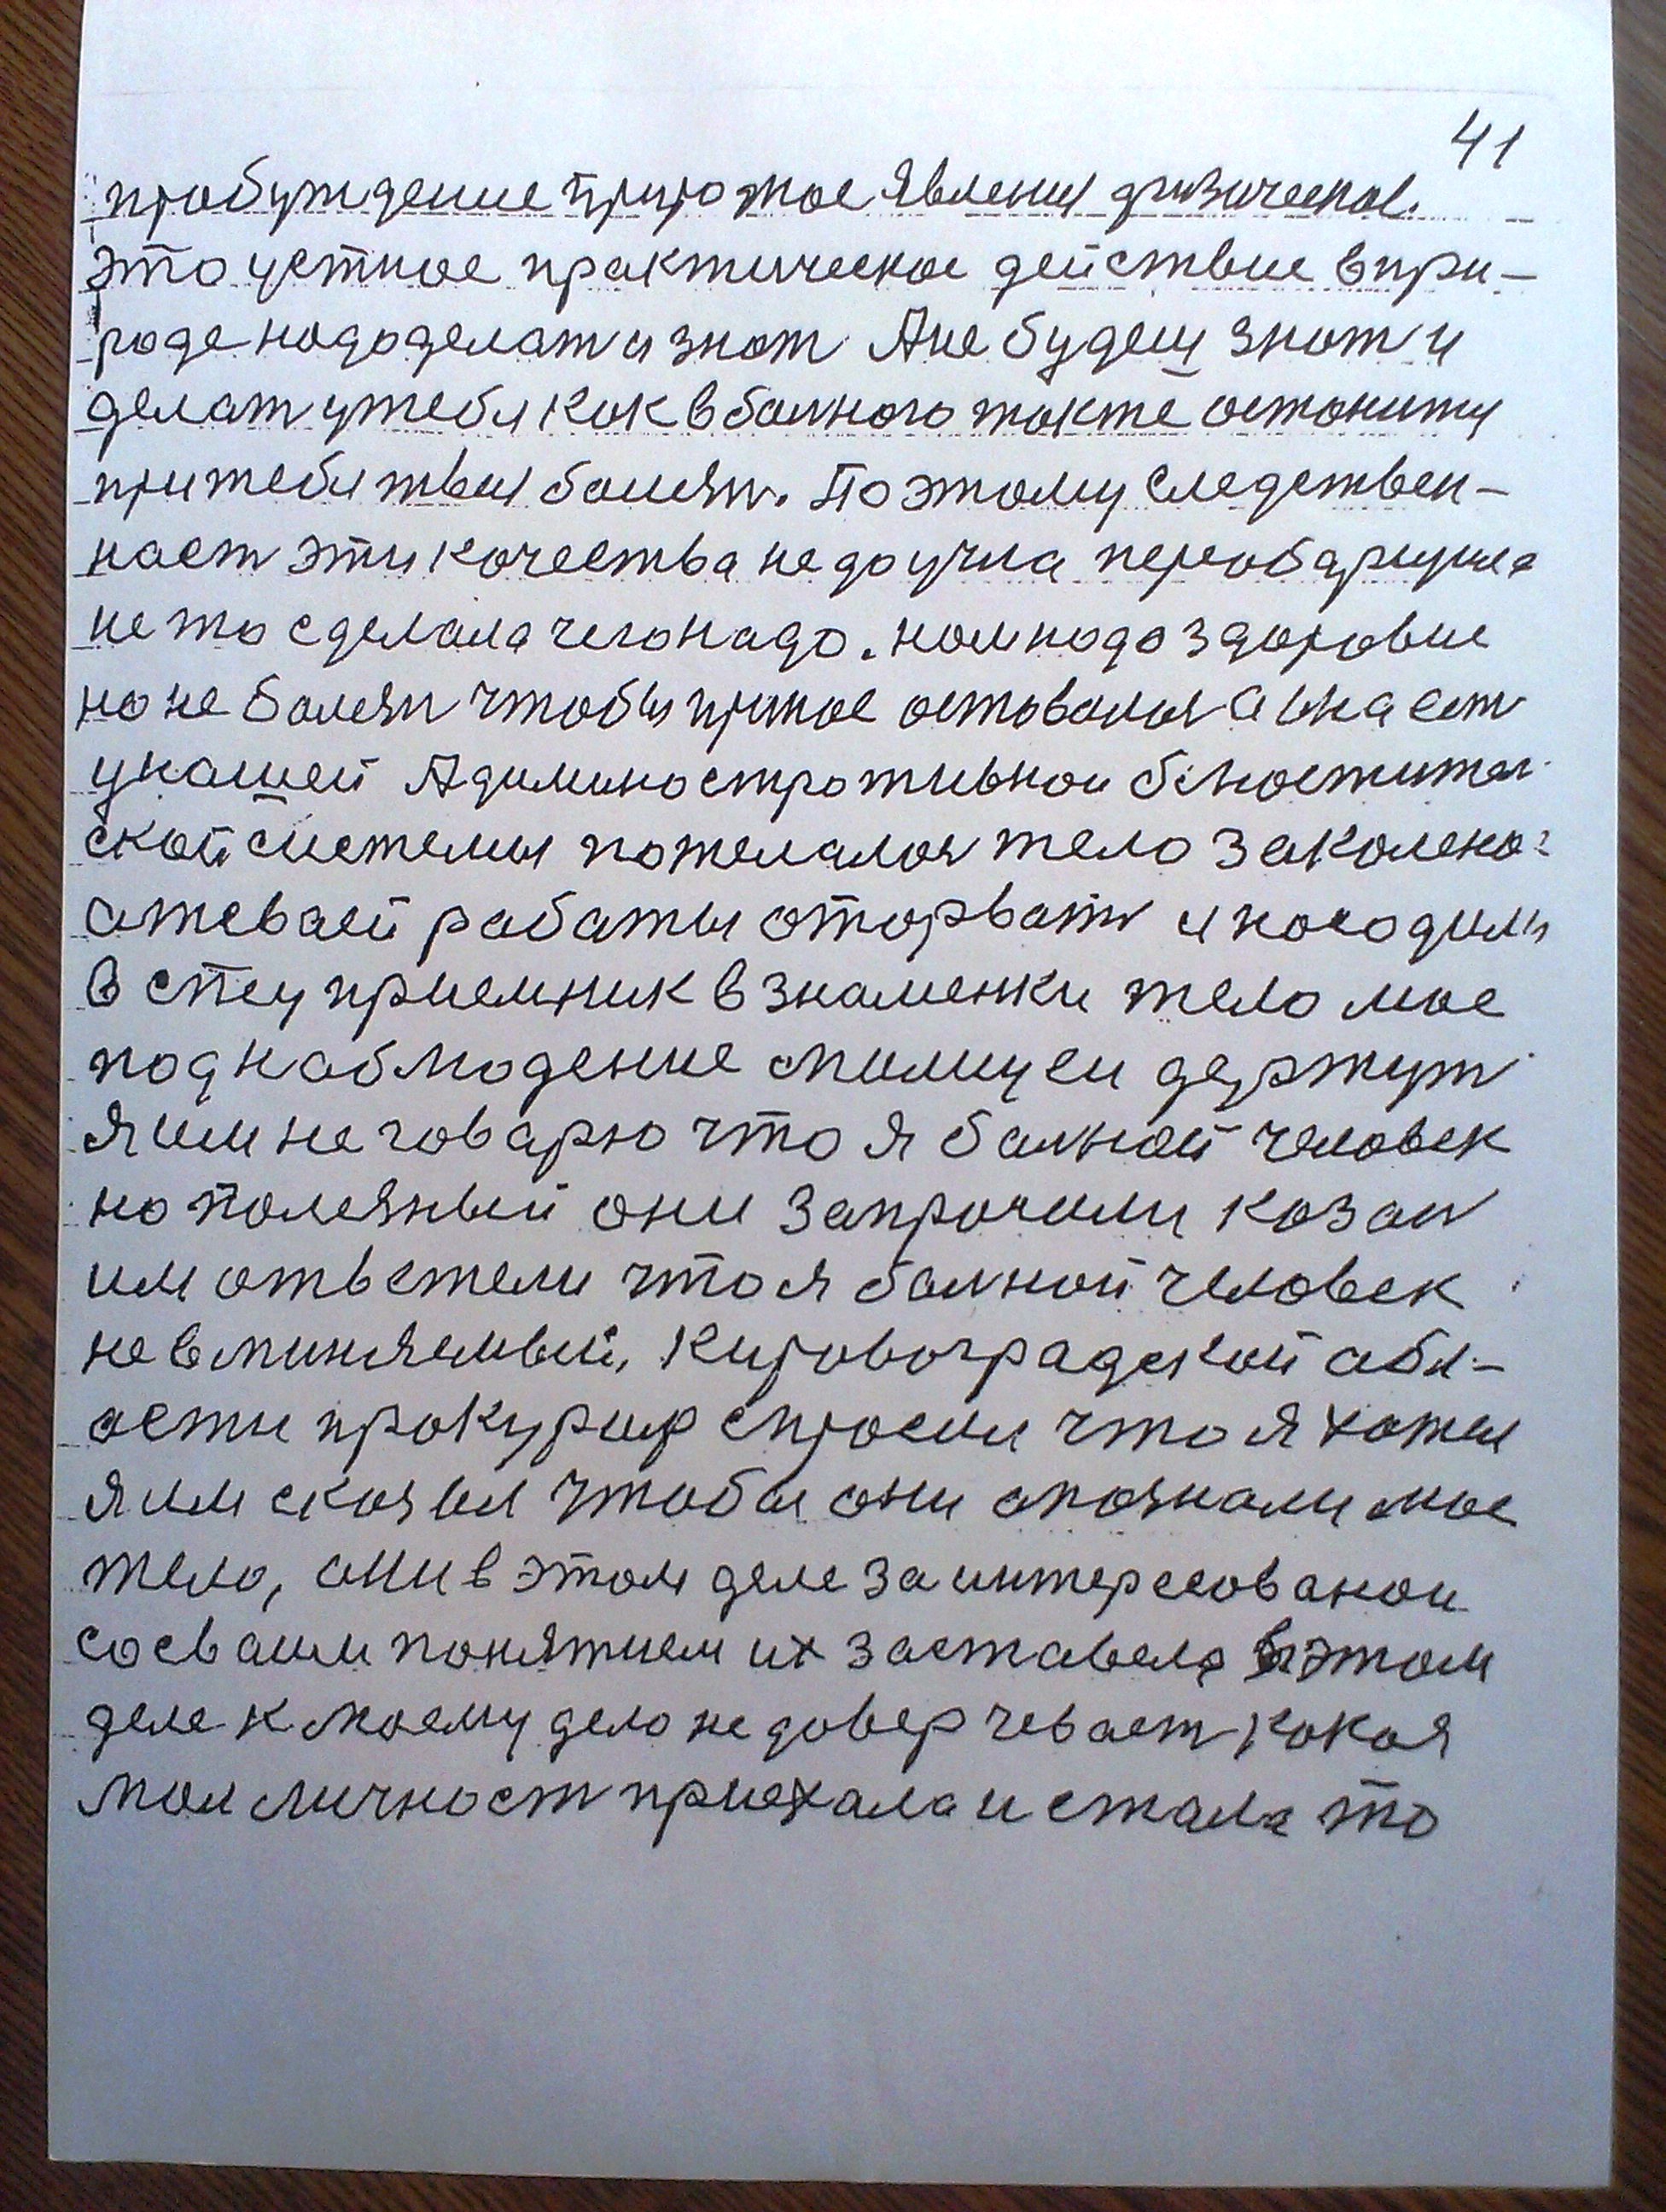 41
пробуждение природное явления физическое.
это устное практическое действие в при-
роде надо делат и знат А не будеш знат и
делат у тебя как в болного также останится
при тебя твоя болезн. Поэтому следствен-
наст эти качества не доучла
не то сделала чего надо. нам надо здоровие
но не болезн чтобы прямое оставалоя а она ест
у нашей Адиминостротивной
ской системы пожелалоя тело за
а твоей работы оторвать и находили
в спец приемник в знаменки тело мое
под наблюдение милицеи держут
я им не говарю что я балной человек
но полезный они запрочили козан
им ответели что я балной человек
не вминяемый, Кировоградской обл-
асти прокурир спросил что я хотел
я им сказал чтобы они опознали мое
тело, они в этом деле заинтересованои
со сваим понятием их заставело в этом
деле к моему дело не доверчевает какая
моя личност приехала и стала то